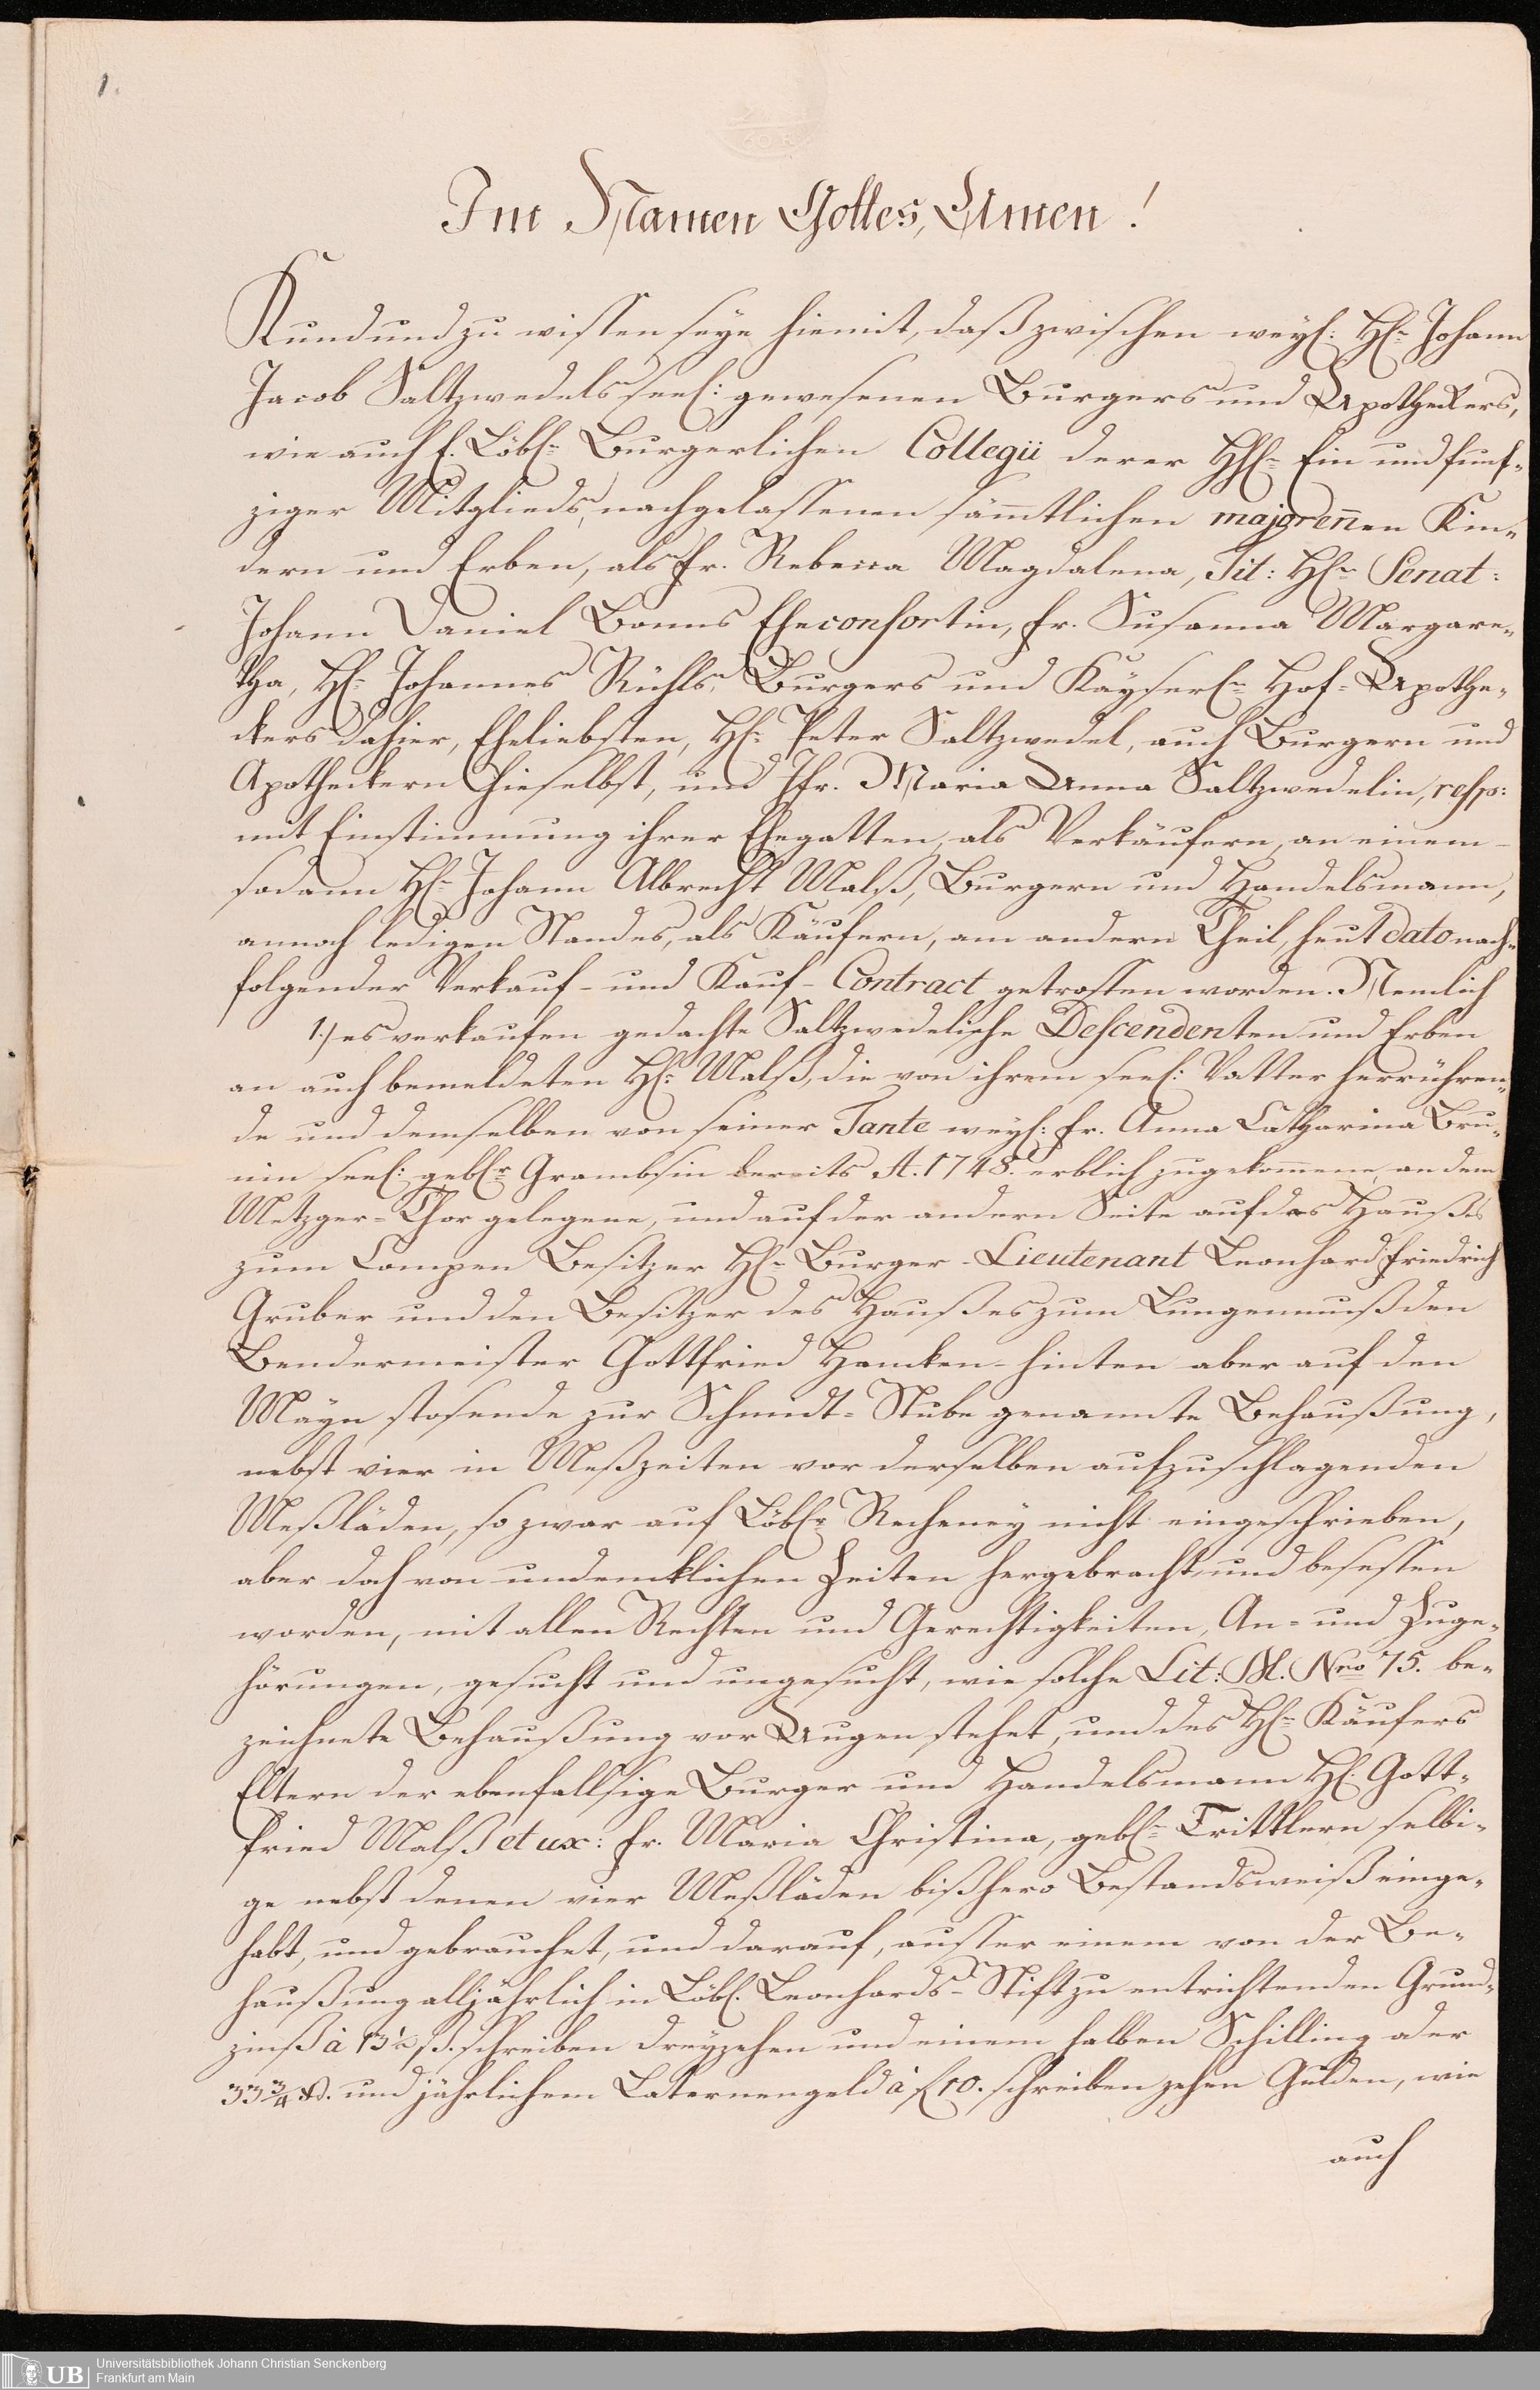 1.
Im Namen Gottes, Amen!
Kund und zu wissen seye hiemit, daß zwischen weyl: H\ℓn Johann
Jacob Saltzwedels seel: gewesenen Burgers und Apotheckers,
wie auch E. Löbl= Burgerlichen Collegii derer HH= Ein und funf-
ziger Mitglieds, nachgelassenen sämtlichen majorennen Kin-
dern und Erben, als Fr. Rebecca Magdalena, Tit: Hn Senat:
Johann Daniel Bonns Eheconsortin, Fr. Susanna Margare-
tha, H= Johannes Rühls, Burgers und Kayserl= Hof-Apothe-
ckers dahier, Eheliebsten, H= Peter Saltzwedel, auch Burgern und
Apotheckern hieselbst, und Jfr. Maria Anna Saltzwedelin, resp:
mit Einstimmung ihrer Ehegatten, als Verkäufern, an einem-
sodann H= Johann Albrecht Malß, Burgern und Handelsmann,
annoch ledigen Standes, als Käufern, am andern Theil, heut dato nach-
folgender Verkauf- und Kauf-Contract getroffen worden. Nemlich
1:) es verkaufen gedachte Saltzwedelische Descendenten und Erben
an auch bemeldeten H= Malß, die von ihrem seel: Vatter herrühren-
de und demselben von seiner Tante weyl: Fr. Anna Catharina Bru-
nin seel: geblr Grambsin bereits A. 1748. erblich zugekommene, an dem
Metzger-Thor gelegene, und auf der andern Seite auf des Haußes
zum Compen Besitzer H= Burger-Lieutenant Leonhard Friedrich
Gruber und den Besitzer des Haußes zum Lungenmuß den
Bendermeister Gottfried Hancken - hinten aber auf den
Mayn stosende zur Schmidt-Stube genannte Behaußung,
nebst vier in Meßzeiten vor derselben aufzuschlagenden
Meßläden, so zwar auf Löblr Recheney nicht eingeschrieben,
aber doch von undencklichen Zeiten hergebracht und besessen
worden, mit allen Rechten und Gerechtigkeiten, An- und Zuge-
hörungen, gesucht und ungesucht, wie solche Lit: M. Nro 75. be-
zeichnete Behaußung vor Augen stehet, und des H= Käufers
Eltern der ebenfallsige Burger und Handelsmann H. Gott-
fried Malß et ux: Fr. Maria Christina, gebl= Trittlern selbi-
ge nebst denen vier Meßläden bißhero Bestandsweiß einge-
habt, und gebrauchet, und darauf, ausser einem von der Be-
haußung alljährlich in Löbl. Leonhards-Stift zu entrichtenden Grund-
zinß à 13½ ß. schreiben dreyzehen und einem halben Schilling oder
33¾ d. und jährlichem Laternengeld à f 10. schreiben zehen Gulden, wie
auch
UB
Universitätsbibliothek Johann Christian Senckenberg
Frankfurt am Main